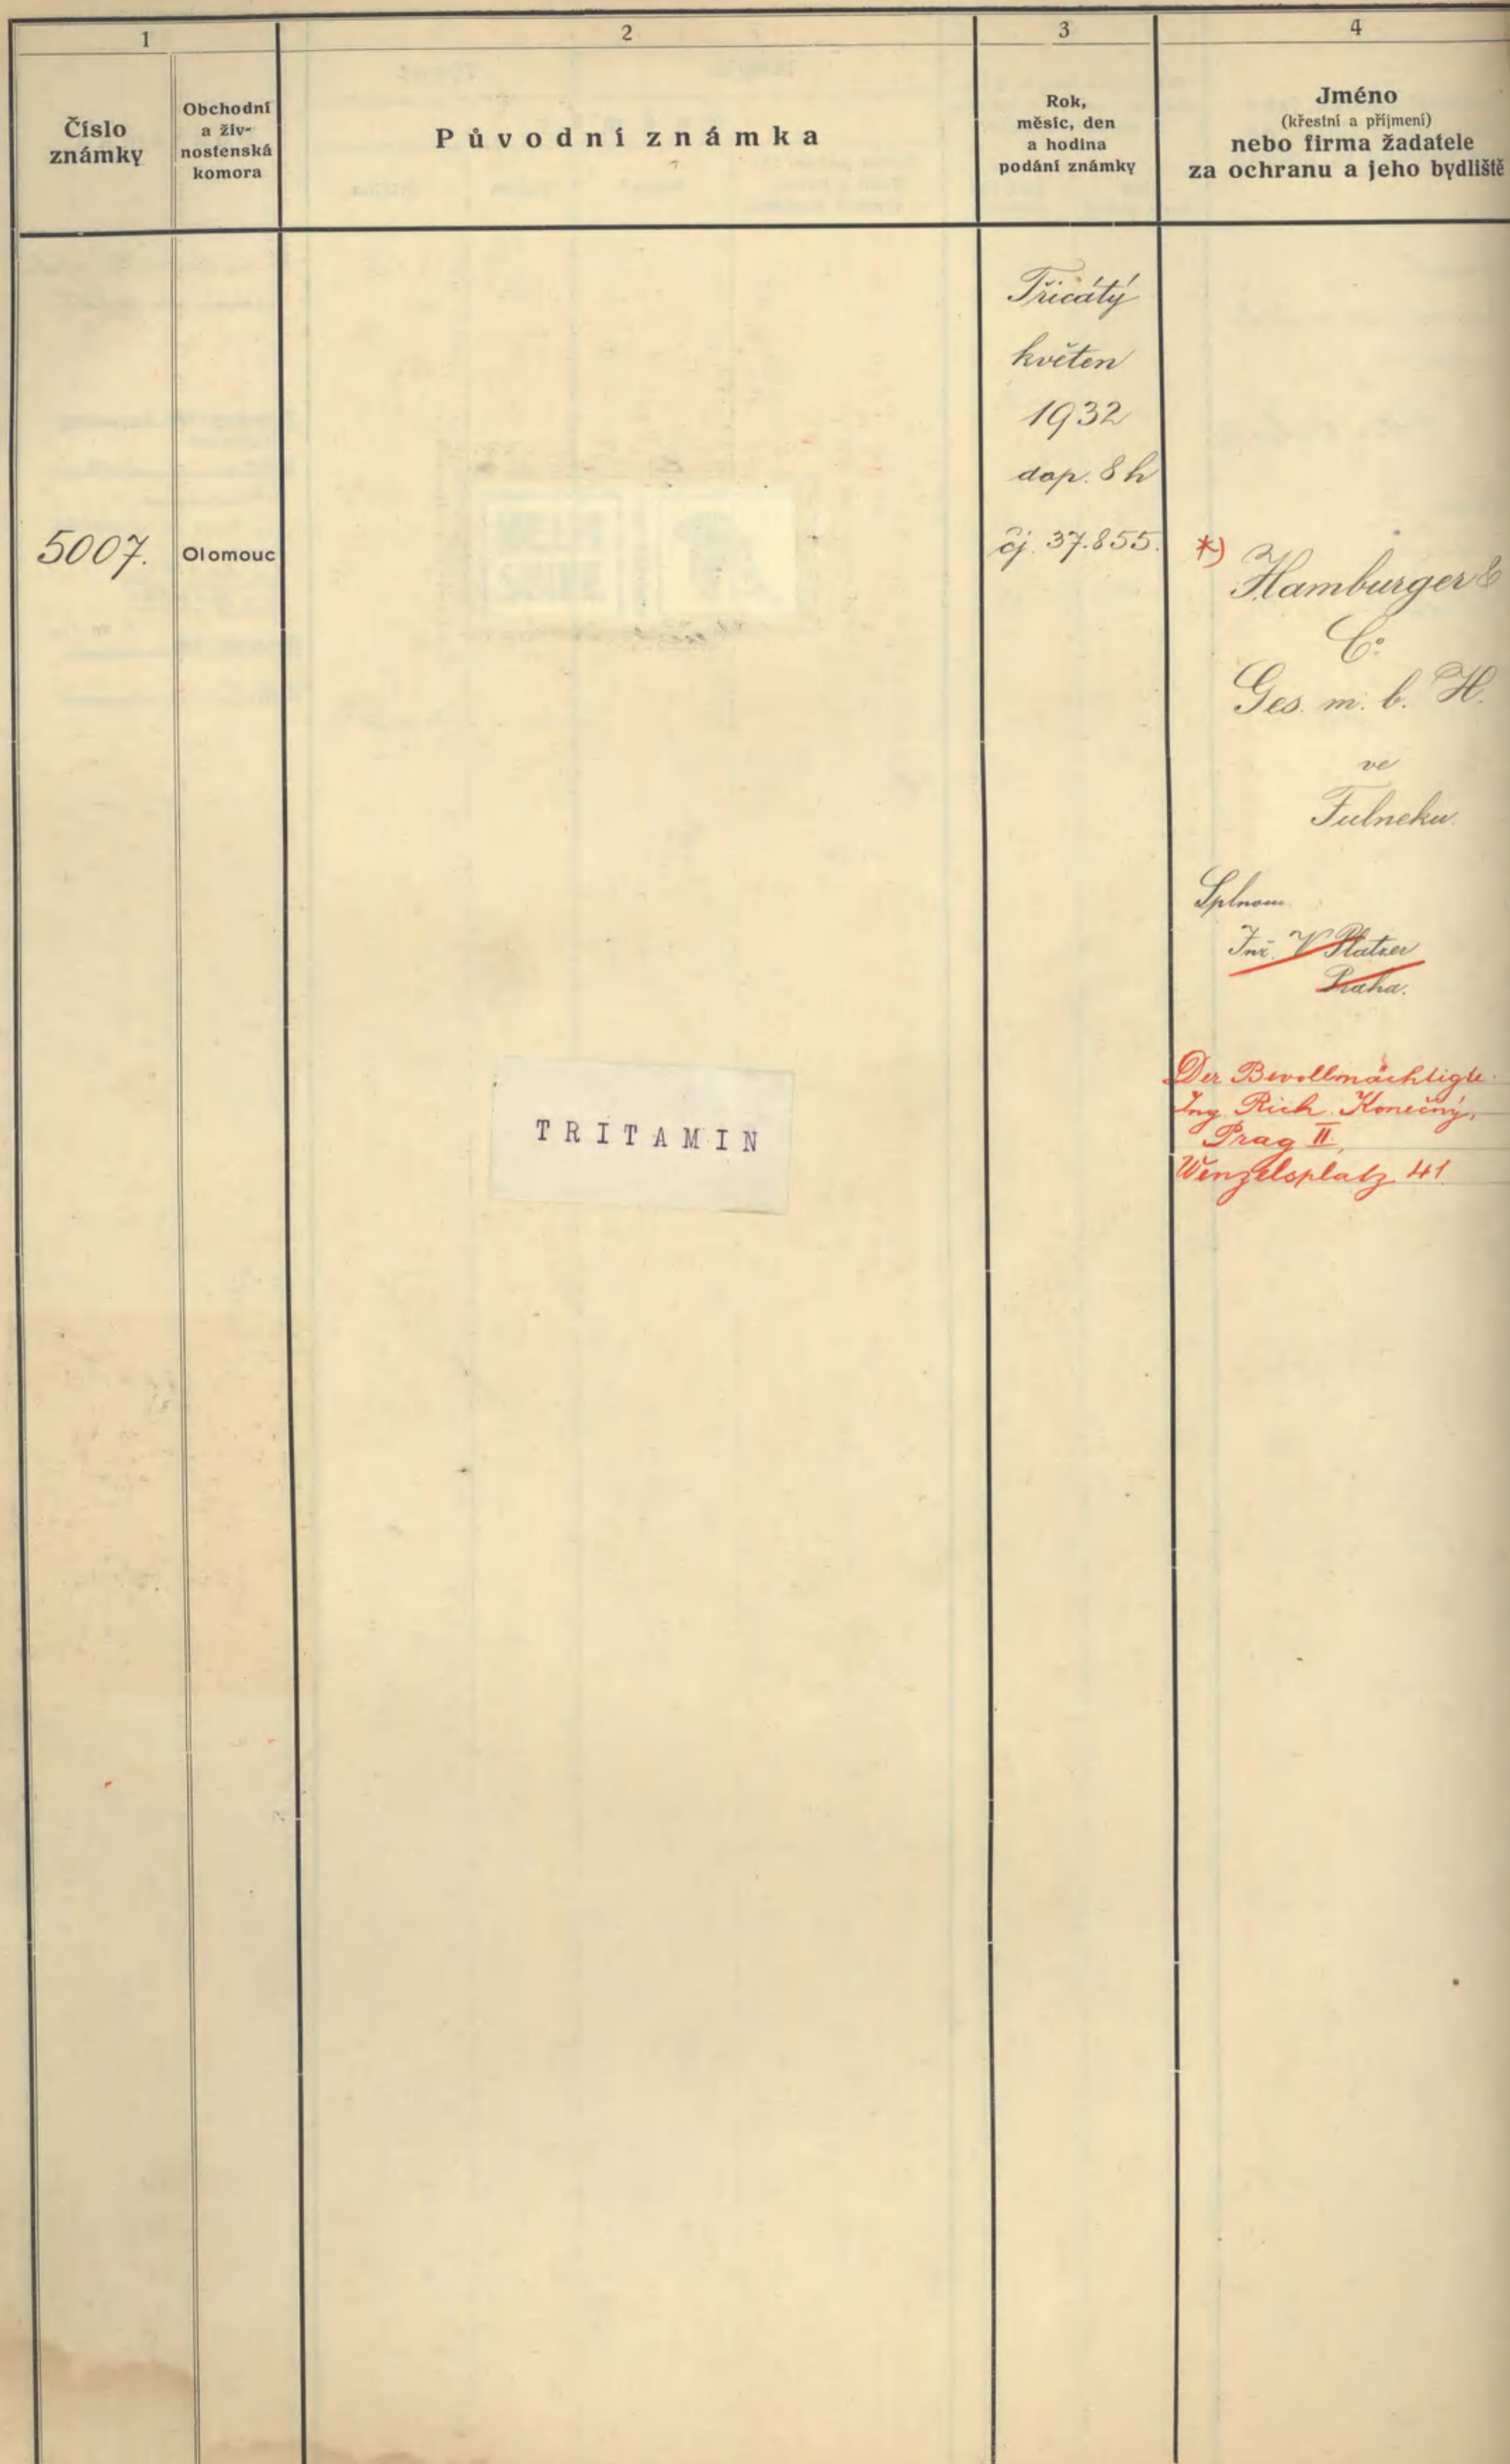 1
2
3
4
Číslo
známky
Obchodní
a živ-
nostenská
komora
Původní známka
Rok,
měsíc, den
a hodina
podání známky
Jméno
(křestní a příjmení)
nebo firma žadatele
za ochranu a jeho bydliště
5007.
Olomouc
TRITAMIN
Třicátý
květen
1932
dop. 8 h
čj. 37.855.
*)
Hamburger &
Co
Ges. m. b. H.
ve
Fulneku.
Splnom.
Inž. V. Platzer
Praha.
Der Bevollmächtigte:
Ing. Rich. Konečný,
Prag II,
Wenzelsplatz 41.